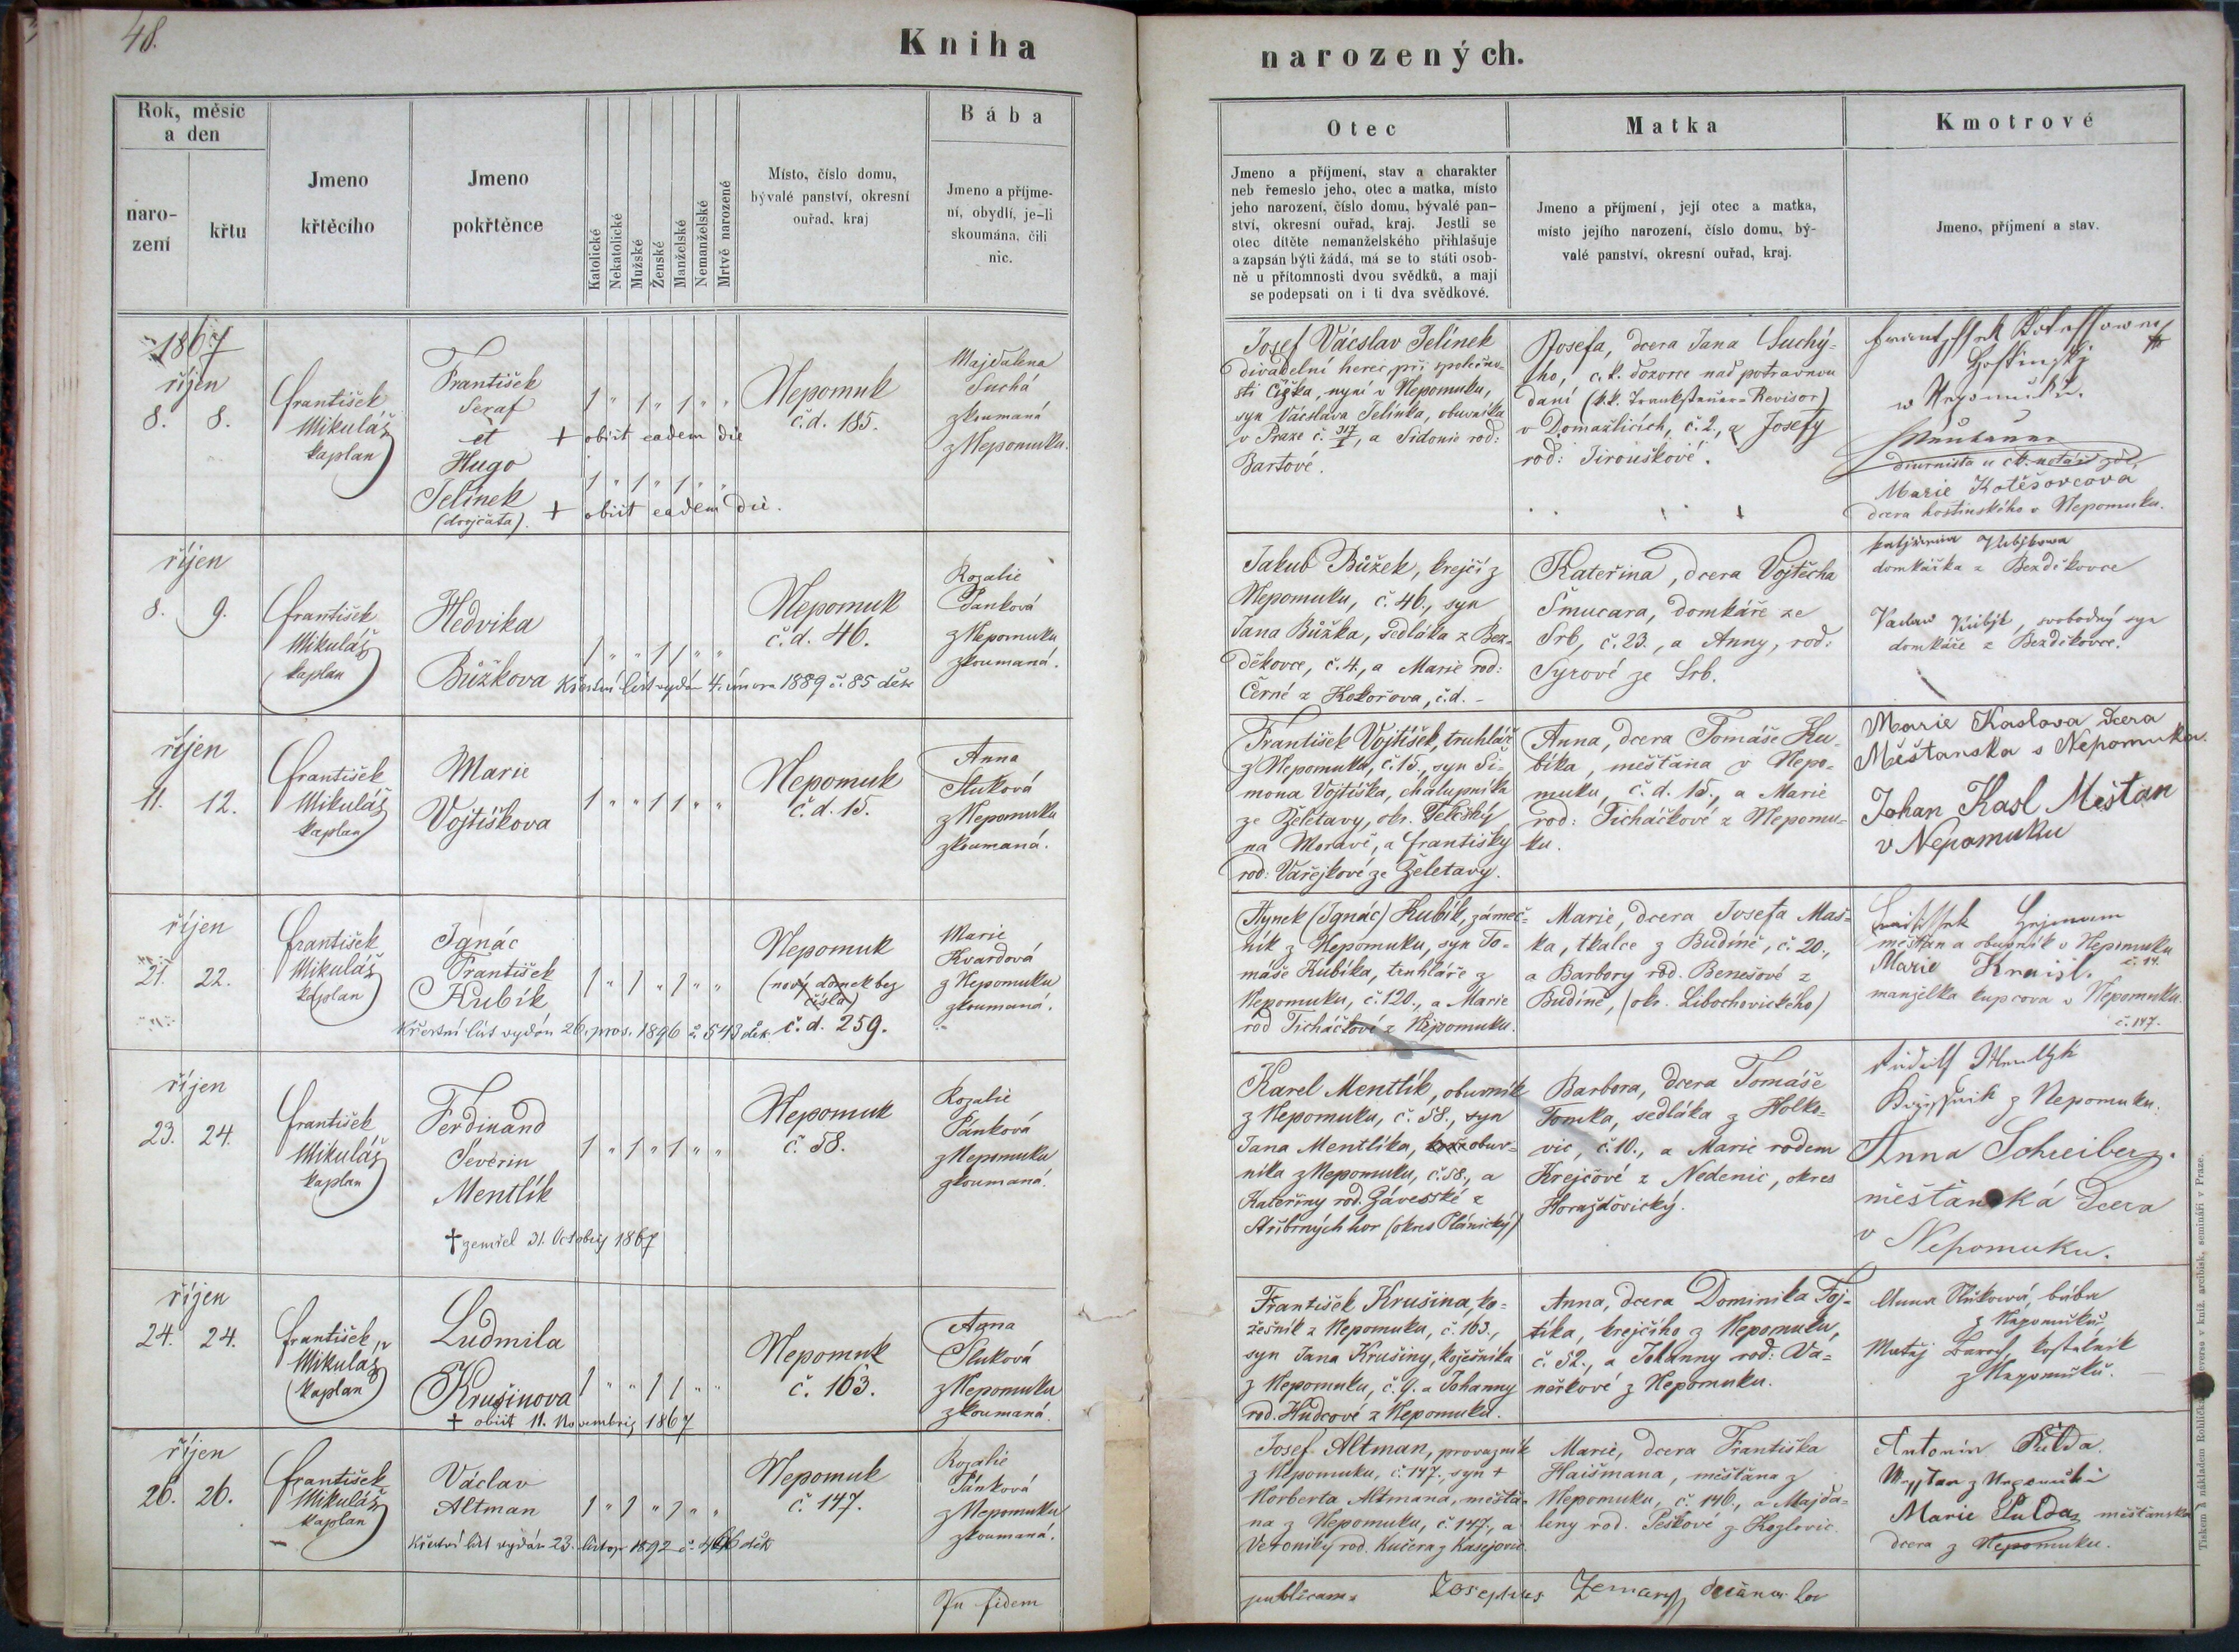 48.
Kniha
narozených.
Rok, měsíc
a den
naro-
zení
křtu
Jmeno
křtěcího
Jmeno
pokřtěnce
Katolické
Nekatolické
Mužské
Ženské
Manželské
Nemanželské
Mrtvě narozené
Místo, číslo domu,
bývalé panství, okresní
ouřad, kraj
Bába
Jmeno a příjme-
ní, obydlí, je-li
skoumána, čili
nic.
Otec
Jmeno a příjmení, stav a charakter
neb řemeslo jeho, otec a matka, místo
jeho narození, číslo domu, bývalé pan-
ství, okresní ouřad, kraj. Jestli se
otec dítěte nemanželského přihlašuje
a zapsán býti žádá, má se to státi osob-
ně u přítomnosti dvou svědků, a mají
se podepsati on i ti dva svědkové.
Matka
Jmeno a příjmení, její otec a matka,
místo jejího narození, číslo domu, bý-
valé panství, okresní ouřad, kraj.
Kmotrové
Jmeno, příjmení a stav.
1867
říjen
8. 8.
František
Mikuláš
kaplan
František
Seraf
et
Hugo
Jelínek
(dvojčata).
1 " 1 " 1 " "
+ obiit eadem die
1 " 1 " 1 " "
+ obiit eadem die.
Nepomuk
č.d. 185.
Majdalena
Suchá
zkoumaná
z Nepomuku.
Josef Vácslav Jelínek
divadelní herec při společno-
sti Čížka, nyní v Nepomuku,
syn Vácslava Jelínka, obuvníka
v Praze č. 317/I, a Sidonie rod:
Bartové.
Josefa, dcera Jana Suchý-
ho, c.k. dozorce nad potravnou
daní (k.k. Tranksteuer-Revisor)
v Domažlicích, č. 2., a Josefy
rod: Jirouškové.
w Nepomuku.
diurnista u ck. notáře zde,
Marie Kotěšovcova
dcera hostinského v Nepomuku.
říjen
8. 9.
František
Mikuláš
kaplan
Hedvika
Bůžkova
1 " " 1 1 " "
Křestní list vydán 4. února 1889 č. 85 děk
Nepomuk
č.d. 46.
Rozalie
Panková
z Nepomuku
zkoumaná.
Jakub Bůžek, krejčí z
Nepomuku, č. 46., syn
Jana Bůžka, sedláka z Bez-
děkovce, č. 4., a Marie rod:
Černé z Kokořova, č.d. -
Kateřina, dcera Vojtěcha
Šmucara, domkáře ze
Srb, č. 23., a Anny, rod:
Syrové ze Srb.
domkářka z Bezděkovce
Vaclaw Kubjk, svobodný syn
domkáře z Bezděkovce.
říjen
11. 12.
František
Mikuláš
kaplan
Marie
Vojtíškova
1 " " 1 1 " "
Nepomuk
č.d. 15.
Anna
Sluková
z Nepomuku
zkoumaná.
František Vojtíšek, truhlář
z Nepomuku, č. 15., syn Ši-
mona Vojtíška, chalupníka
ze Želetavy, okr. Telčský
na Moravě, a Františky
rod: Vařejkové ze Želetavy.
Anna, dcera Tomáše Ku-
bíka, měšťana v Nepo-
muku, č. d. 15., a Marie
rod: Ticháčkové z Nepomu-
ku.
Marie Kaslova dcera
Měštanska s Nepomuka
Johan Kasl Mestan
v Nepomuku
říjen
21. 22.
František
Mikuláš
kaplan
Ignác
František
Kubík
1 " 1 " 1 " "
Křestní list vydán 26. pros. 1896 č. 543 děk.
Nepomuk
(nový domek bez
čísla)
č.d. 259.
Marie
Kvardová
z Nepomuku
zkoumaná.
Hynek (Ignác) Kubík, zámeč-
ník z Nepomuku, syn To-
máše Kubíka, truhláře z
Nepomuku, č. 120., a Marie
rod Ticháčkové z Nepomuku.
Marie, dcera Josefa Maš-
ka, tkalce z Budíně, č. 20.,
a Barbory rod. Benešové z
Budíně, (okr. Libochovického)
měšťan a obuvník v Nepomuku
č. 14.
Marie Kraisl.
manželka kupcova v Nepomuku.
č. 147.
říjen
23. 24.
František
Mikuláš
kaplan
Ferdinand
Severin
Mentlík
† zemřel 31. Octobris 1867
1 " 1 " 1 " "
Nepomuk
č. 58.
Rozalie
Pánková
z Nepomuku
zkoumaná.
Karel Mentlík, obuvník
z Nepomuku, č. 58., syn
Jana Mentlíka, obuv-
níka z Nepomuku, č. 58., a
Kateřiny rod. Záveské z
Stříbrných hor (okres Plánický)
Barbora, dcera Tomáše
Tomka, sedláka z Holko-
vic, č. 10., a Marie rodem
Krejčové z Nedenic, okres
Horažďovický.
Rudolf Mentlyk
z Nepomuku.
Anna Schreiber.
měšťanská Dcera
v Nepomuku.
říjen
24. 24.
František
Mikuláš
kaplan
Ludmila
Krušinova
+ obiit 11. Novembris 1867
1 " " 1 1 " "
Nepomuk
č. 163.
Anna
Sluková
z Nepomuku
zkoumaná.
František Krušina, ko-
žešník z Nepomuku, č. 163.,
syn Jana Krušiny, kožešníka
z Nepomuku, č. 9. a Johanny
rod. Hudcové z Nepomuku.
Anna, dcera Dominika Foj-
tíka, krejčího z Nepomuku,
č. 52., a Johanny rod: Va-
neřkové z Nepomuku.
Anna Slukowá, bába
z Nepomuku.
Matěj kostelník
z Nepomuku.
říjen
26. 26.
František
Mikuláš
kaplan
Václav
Altman
1 " 1 " 1 " "
Křestní list vydán 23. listop 1892 č. 466 děk
Nepomuk
č. 147.
Rozalie
Pánková
z Nepomuku
zkoumaná.
Josef Altman, provazník
z Nepomuku, č. 147., syn +
Norberta Altmana, měšťa-
na z Nepomuku, č. 147., a
Veroniky rod. Kučera z Kasejovic.
Marie, dcera Františka
Haišmana, měšťana z
Nepomuku, č. 146., a Majda-
leny rod. Peškové z Kozlovic.
Antonín Šulda.
Marie Šulda, měštanska
dcera z Nepomuku.
In fidem
publicam. Josephus Zeman,
Tiskem a nákladem Rohlíčka v kníž. arcibisk. semináři v Praze.